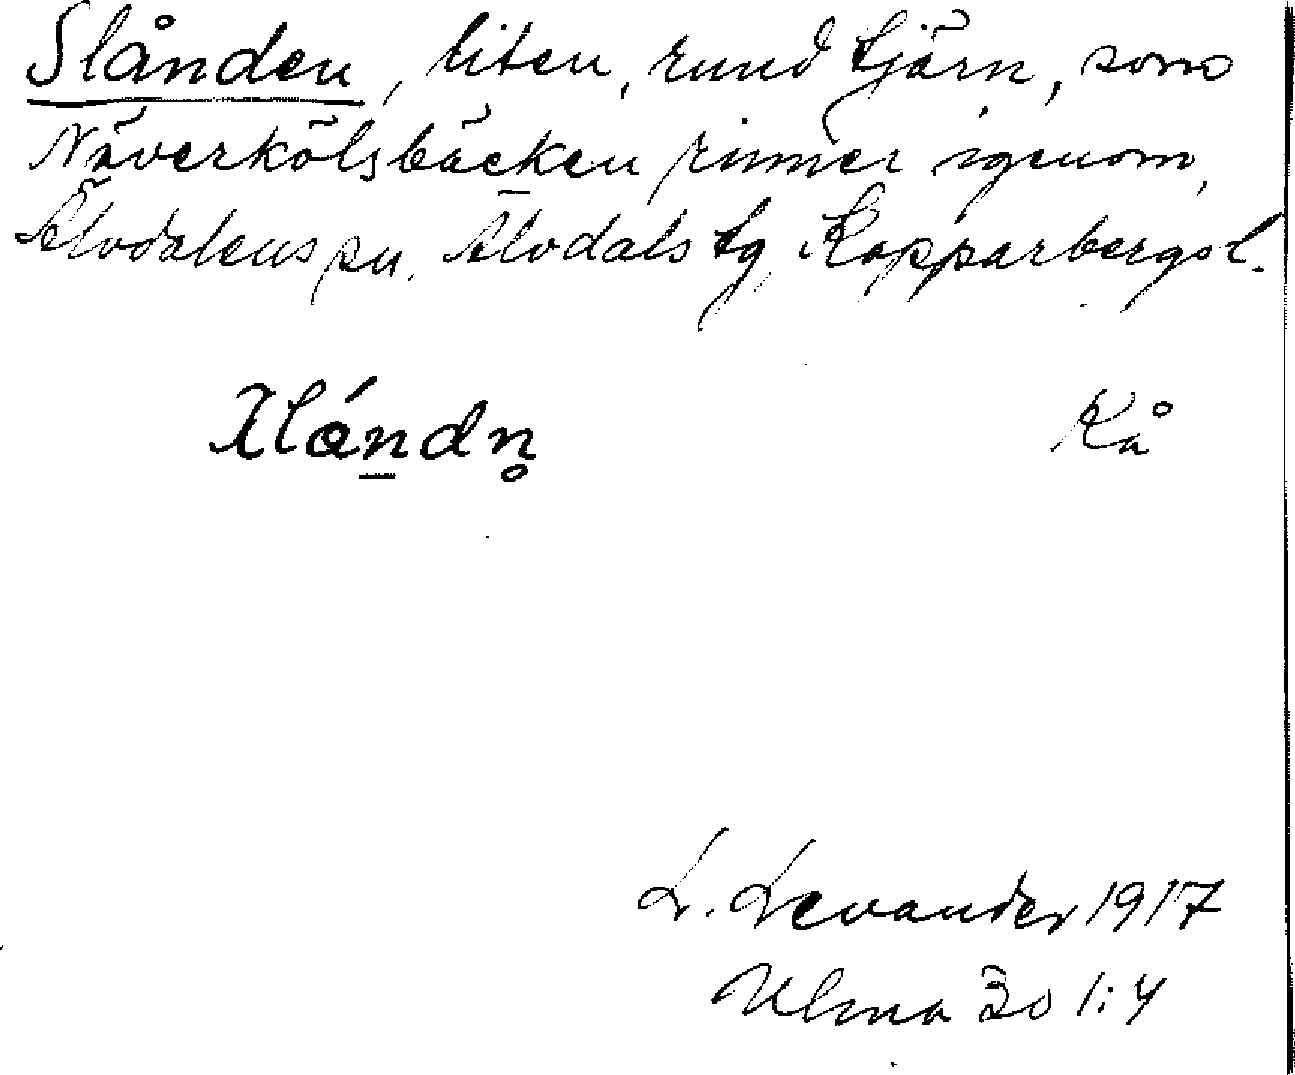 Slånden, liten, rund tjärn, som
Näverkölsbäcken rinner igenom,
Älvdalens sn. Älvdals tg, Kopparbergs l.
Kå
L. Levander 1917
Ulma 30 1:4